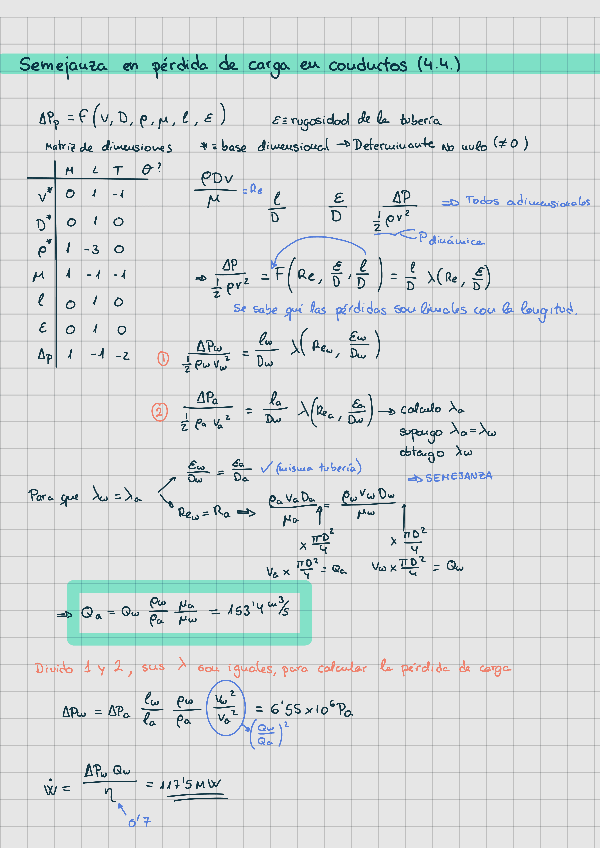 Semejanza en pérdida de carga en conductos (4.4.)
ΔPp = F(v, D, ρ, μ, l, ε) ε ≡ rugosidad de la tubería
Matriz de dimensiones * = base dimensional → Determinante no nulo (≠ 0)
M L T θ?
v* 0 1 -1
D* 0 1 0
ρ* 1 -3 0
μ 1 -1 -1
l 0 1 0
ε 0 1 0
Δp 1 -1 -2
ρDv/μ = Re l/D ε/D ΔP/(½ρv²) ⇒ Todos adimensionales
P dinámica
⇒ ΔP/(½ρv²) = F(Re, ε/D, l/D) = l/D λ(Re, ε/D)
Se sabe que las pérdidas son lineales con la longitud.
① ΔPw/(½ρw vw²) = lw/Dw λ(Rew, εw/Dw)
② ΔPa/(½ρa va²) = la/Dw λ(Rea, εa/Da) → calculo λa
supongo λa = λw
obtengo λw
⇒ SEMEJANZA
Para que λw = λa
εw/Dw = εa/Da ✓ (misma tubería)
Rew = Ra ⇒ ρa va Da/μa = ρw vw Dw/μw
× πD²/4 × πD²/4
va × πD²/4 = Qa vw × πD²/4 = Qw
⇒ Qa = Qw ρw/ρa μa/μw = 153'4 m³/s
Divido 1 y 2, sus λ son iguales, para calcular la pérdida de carga
ΔPw = ΔPa lw/la ρw/ρa vw²/va² = 6'55 × 10⁶ Pa
(Qw/Qa)²
Ẇ = ΔPw Qw/η = 117'5 MW
0'7